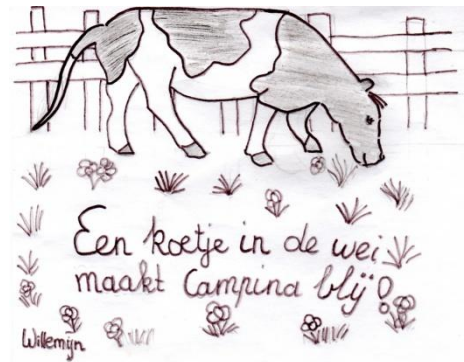 Een koetje in de wei
maakt Campina blij!
Willemijn